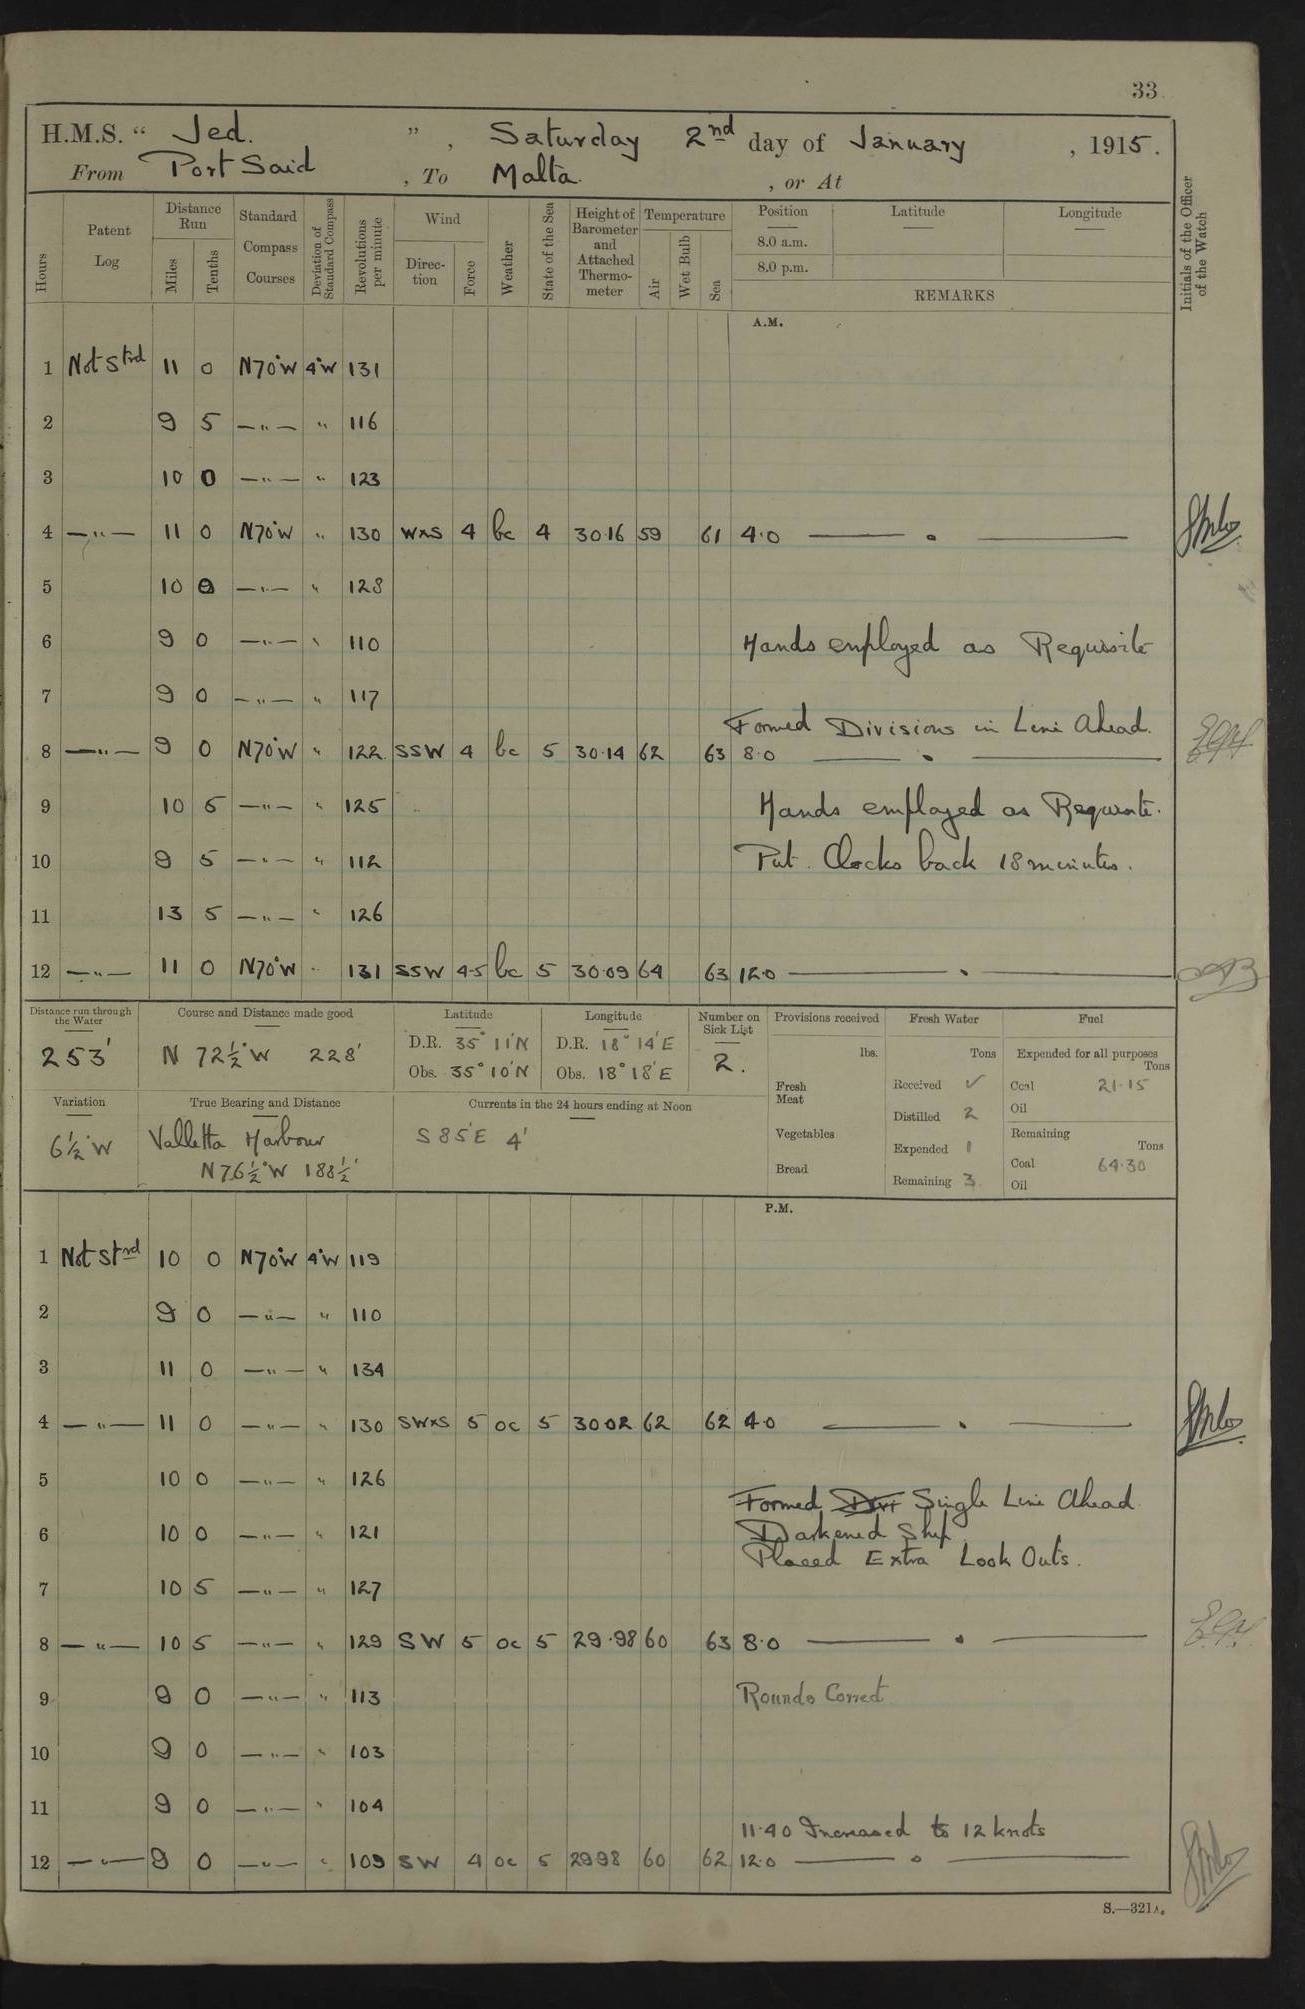 33
H.M.S. “ Jed. ”, Saturday 2nd day of January, 1915.
From Port Said, To Malta, or At
Hours
Patent Log
Distance Run
Miles
Tenths
Standard Compass Courses
Deviation of Standard Compass
Revolutions per minute
Wind
Direction
Force
Weather
State of the Sea
Height of Barometer and Attached Thermometer
Temperature
Air
Wet Bulb
Sea
Position
8.0 a.m.
8.0 p.m.
Latitude
Longitude
REMARKS
Initials of the Officer of the Watch
A.M.
1 Not Strd 11 0 N70°W 4°W 131
2 9 5 —"— " 116
3 10 0 —"— " 123
4 —"— 11 0 N70°W " 130 WxS 4 bc 4 30·16 59 61 4·0
5 10 0 —"— " 128
6 9 0 —"— " 110 Hands employed as Requisite
7 9 0 —"— " 117
Formed Divisions in Line Ahead.
8 —"— 9 0 N70°W " 122 SSW 4 bc 5 30·14 62 63 8·0
9 10 5 —"— " 125 Hands employed as Requisite.
10 9 5 —"— " 112 Put Clocks back 18 minutes.
11 13 5 —"— " 126
12 —"— 11 0 N70°W " 131 SSW 4-5 bc 5 30·09 64 63 12·0
Distance run through the Water
253'
Course and Distance made good
N 72½°W 228'
Latitude
D.R. 35° 11'N
Obs. 35° 10'N
Longitude
D.R. 18° 14'E
Obs. 18° 18'E
Number on Sick List
2.
Provisions received
lbs.
Fresh Meat
Vegetables
Bread
Fresh Water
Tons
Received ✓
Distilled 2
Expended 1
Remaining 3
Fuel
Expended for all purposes
Tons
Coal 21·15
Oil
Remaining
Tons
Coal 64·30
Oil
Variation
6½°W
True Bearing and Distance
Valletta Harbour
N76½°W 188½'
Currents in the 24 hours ending at Noon
S 85°E 4'
P.M.
1 Not Strd 10 0 N70°W 4°W 119
2 9 0 —"— " 110
3 11 0 —"— " 134
4 —"— 11 0 —"— " 130 SWxS 5 oc 5 3002 62 62 4·0
5 10 0 —"— " 126
Formed Divi Single Line Ahead
6 10 0 —"— " 121 Darkened Ship
Placed Extra Look Outs.
7 10 5 —"— " 127
8 —"— 10 5 —"— " 129 SW 5 oc 5 29·98 60 63 8·0
9 9 0 —"— " 113 Rounds Correct
10 9 0 —"— " 103
11 9 0 —"— " 104
11·40 Increased to 12 knots
12 —"— 9 0 —"— " 109 SW 4 oc 5 2998 60 62 12·0
S.—321A.